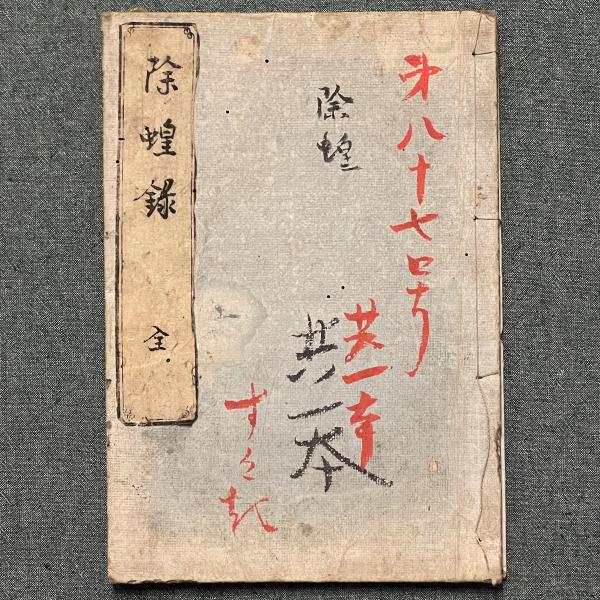 第八十七号
共一本
除蝗
共一本
除蝗録
全